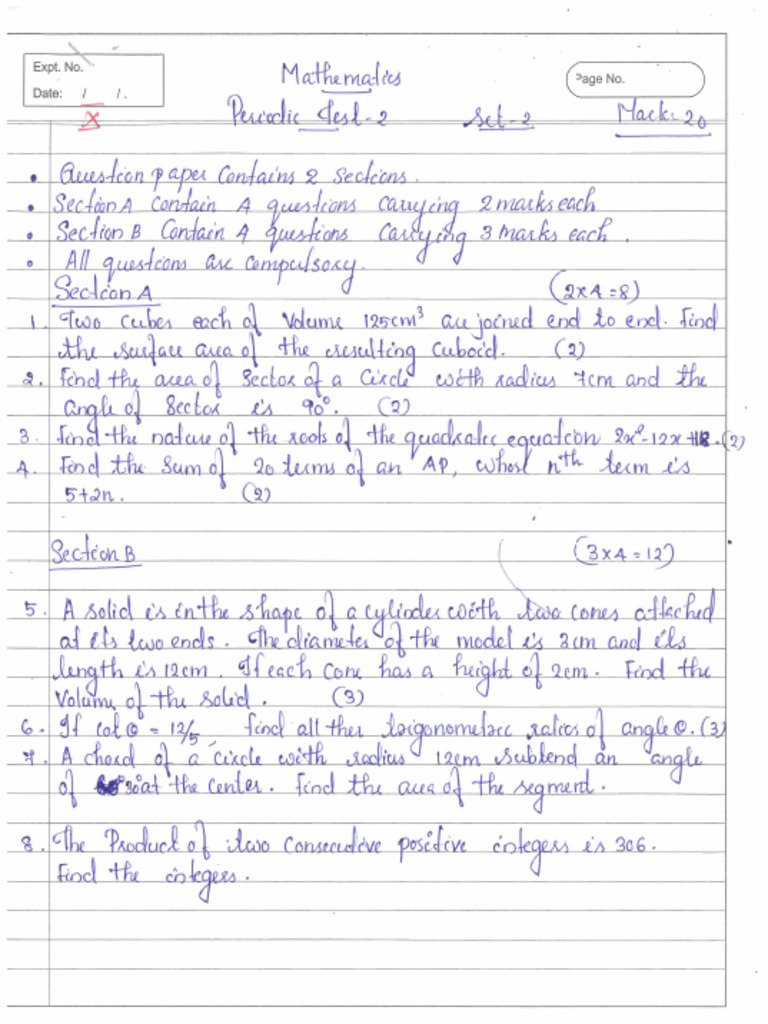 Expt. No.
Date: / /.
Mathematics
Page No.
Periodic Test-2 Set-2 Mark: 20
• Question paper Contains 2 Sections.
• Section A Contain 4 questions carrying 2 marks each
• Section B Contain 4 questions carrying 3 marks each.
• All questions are compulsory.
Section A (2×4=8)
1. Two cubes each of Volume 125cm³ are joined end to end. Find
the surface area of the resulting Cuboid. (2)
2. Find the area of Sector of a Circle with radius 7cm and the
angle of Sector is 90°. (2)
3. Find the nature of the roots of the quadratic equation 2x²-12x+18. (2)
4. Find the Sum of 20 terms of an AP, whose nth term is
5+2n. (2)
Section B (3×4=12)
5. A solid is in the shape of a cylinder with two cones attached
at its two ends. The diameter of the model is 3cm and its
length is 12cm. If each Cone has a height of 2cm. Find the
Volume of the solid. (3)
6. If cot θ = 12/5, find all ther trigonometric ratios of angle θ. (3)
7. A chord of a circle with radius 12cm subtend an angle
of at the center. Find the area of the segment.
8. The Product of two consecutive positive integers is 306.
Find the integers.